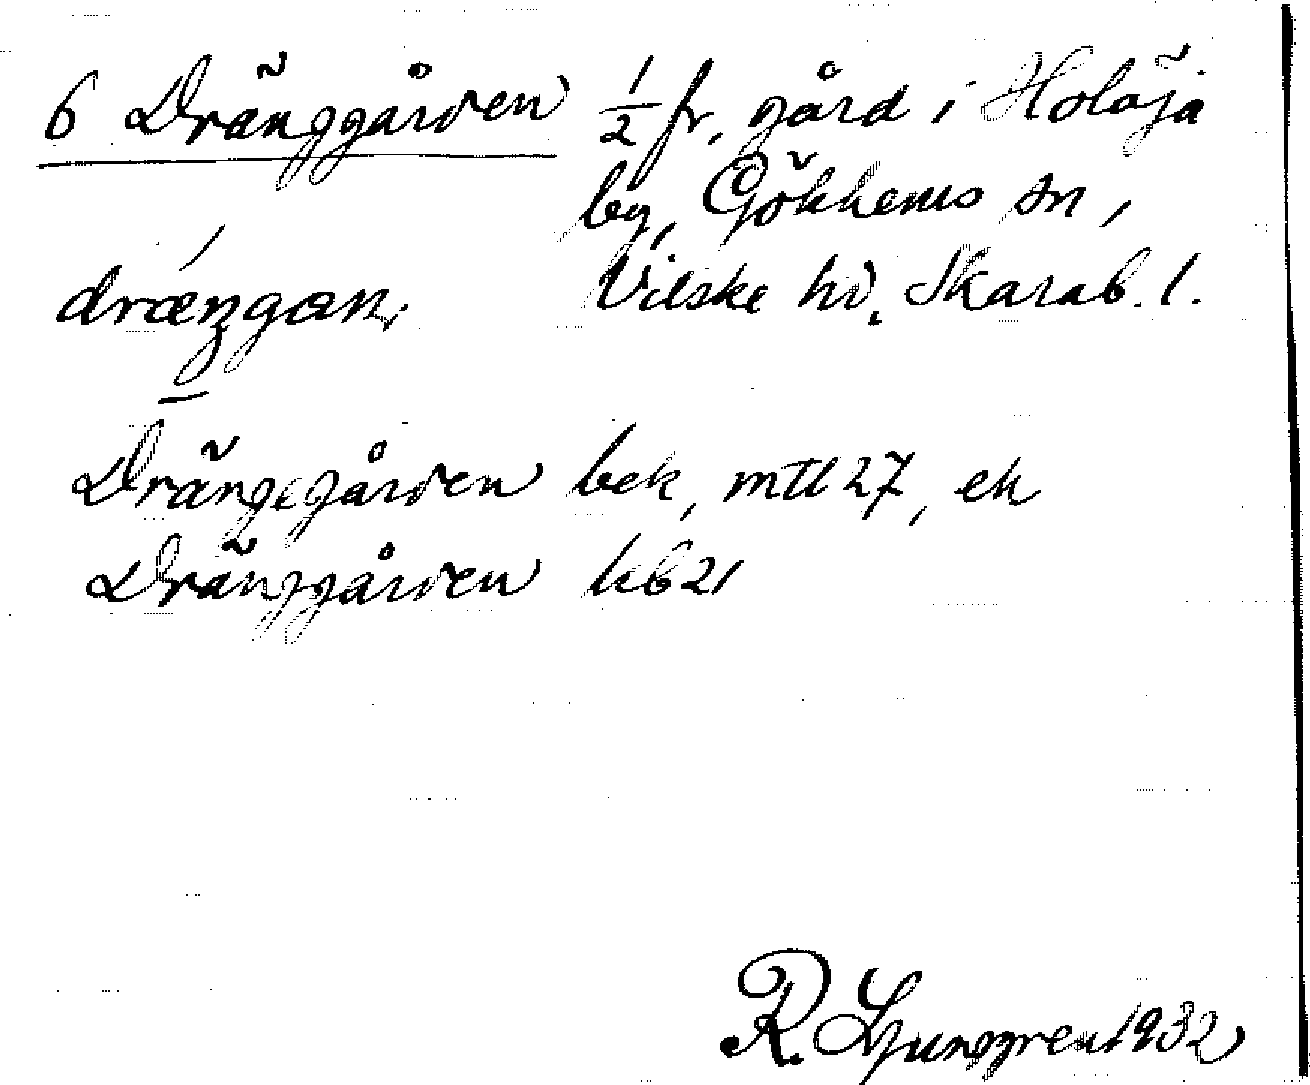 6 Dränggården ½ fr. gård i Holäja
by, Gökhems sn,
Vilske hd. Skarab. l.
drængan,
Drängegården bek, mtl 27, ek
Dränggården kb 21
R. Ljunggren 1932